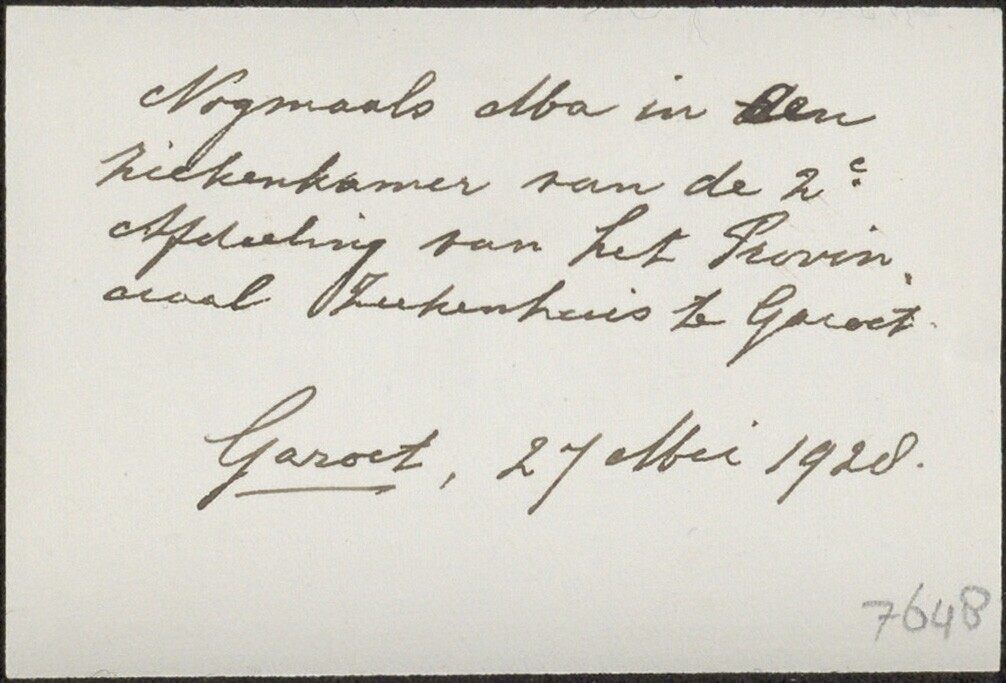 Nogmaals Ma in een
ziekenkamer van de 2e
Afdeeling van het Provin,
ciaal Ziekenhuis te Garoet.
Garoet, 27 Mei 1928.
7648